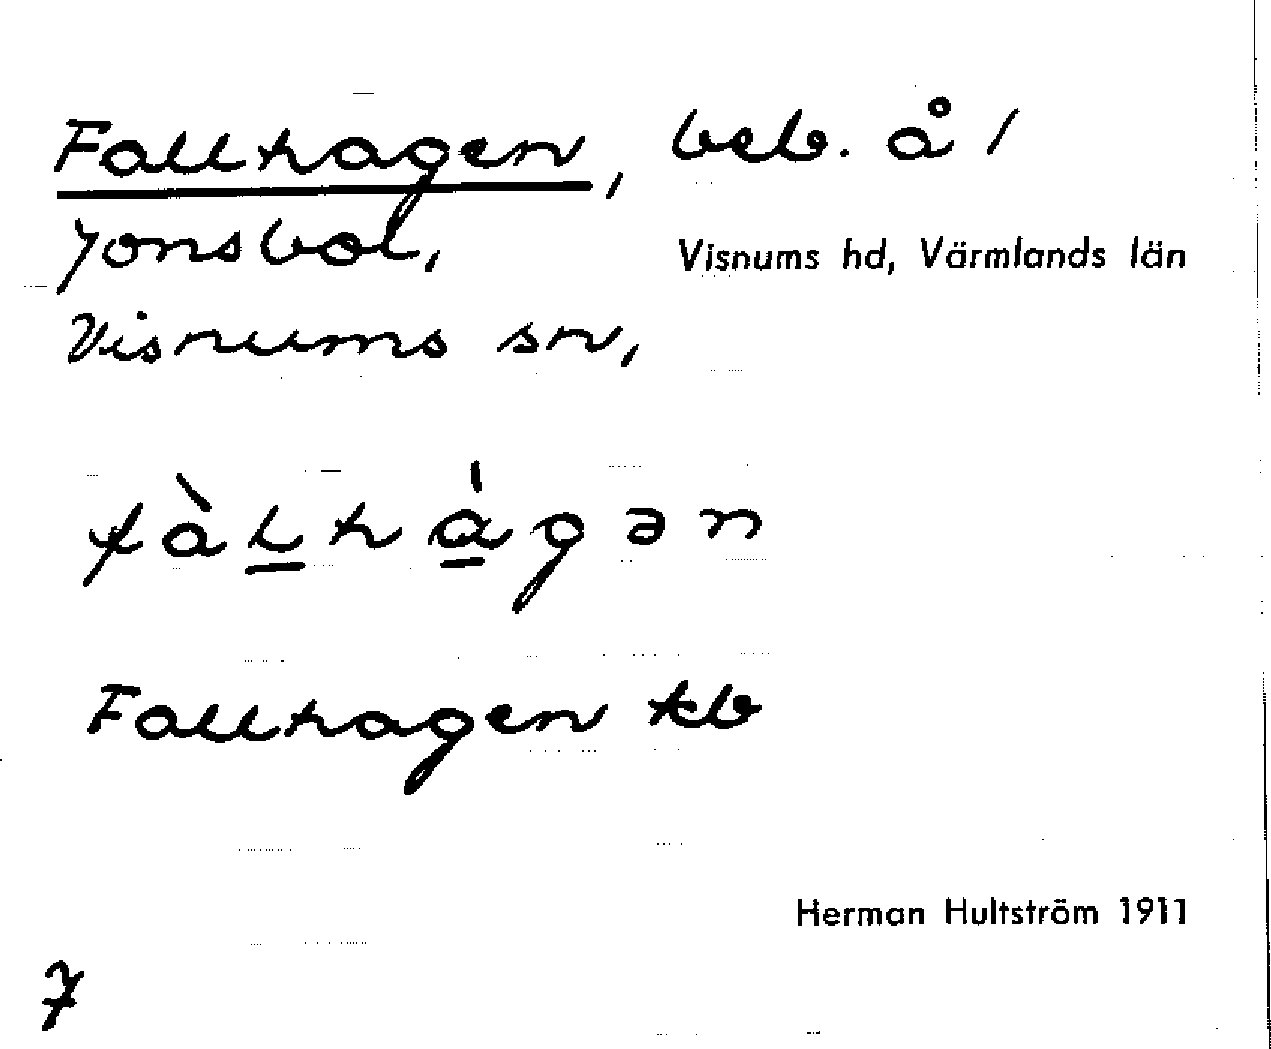 Fallhagen, beb. å /
Jonsbol,
Visnums hd, Värmlands län
Visnums sn,
fàl̲há̲gən
Fallhagen kb
Herman Hultström 1911
7